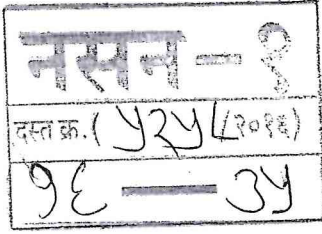 नसन - १
दस्त क्र. ( ५२५८/२०१६)
१६ — ३५